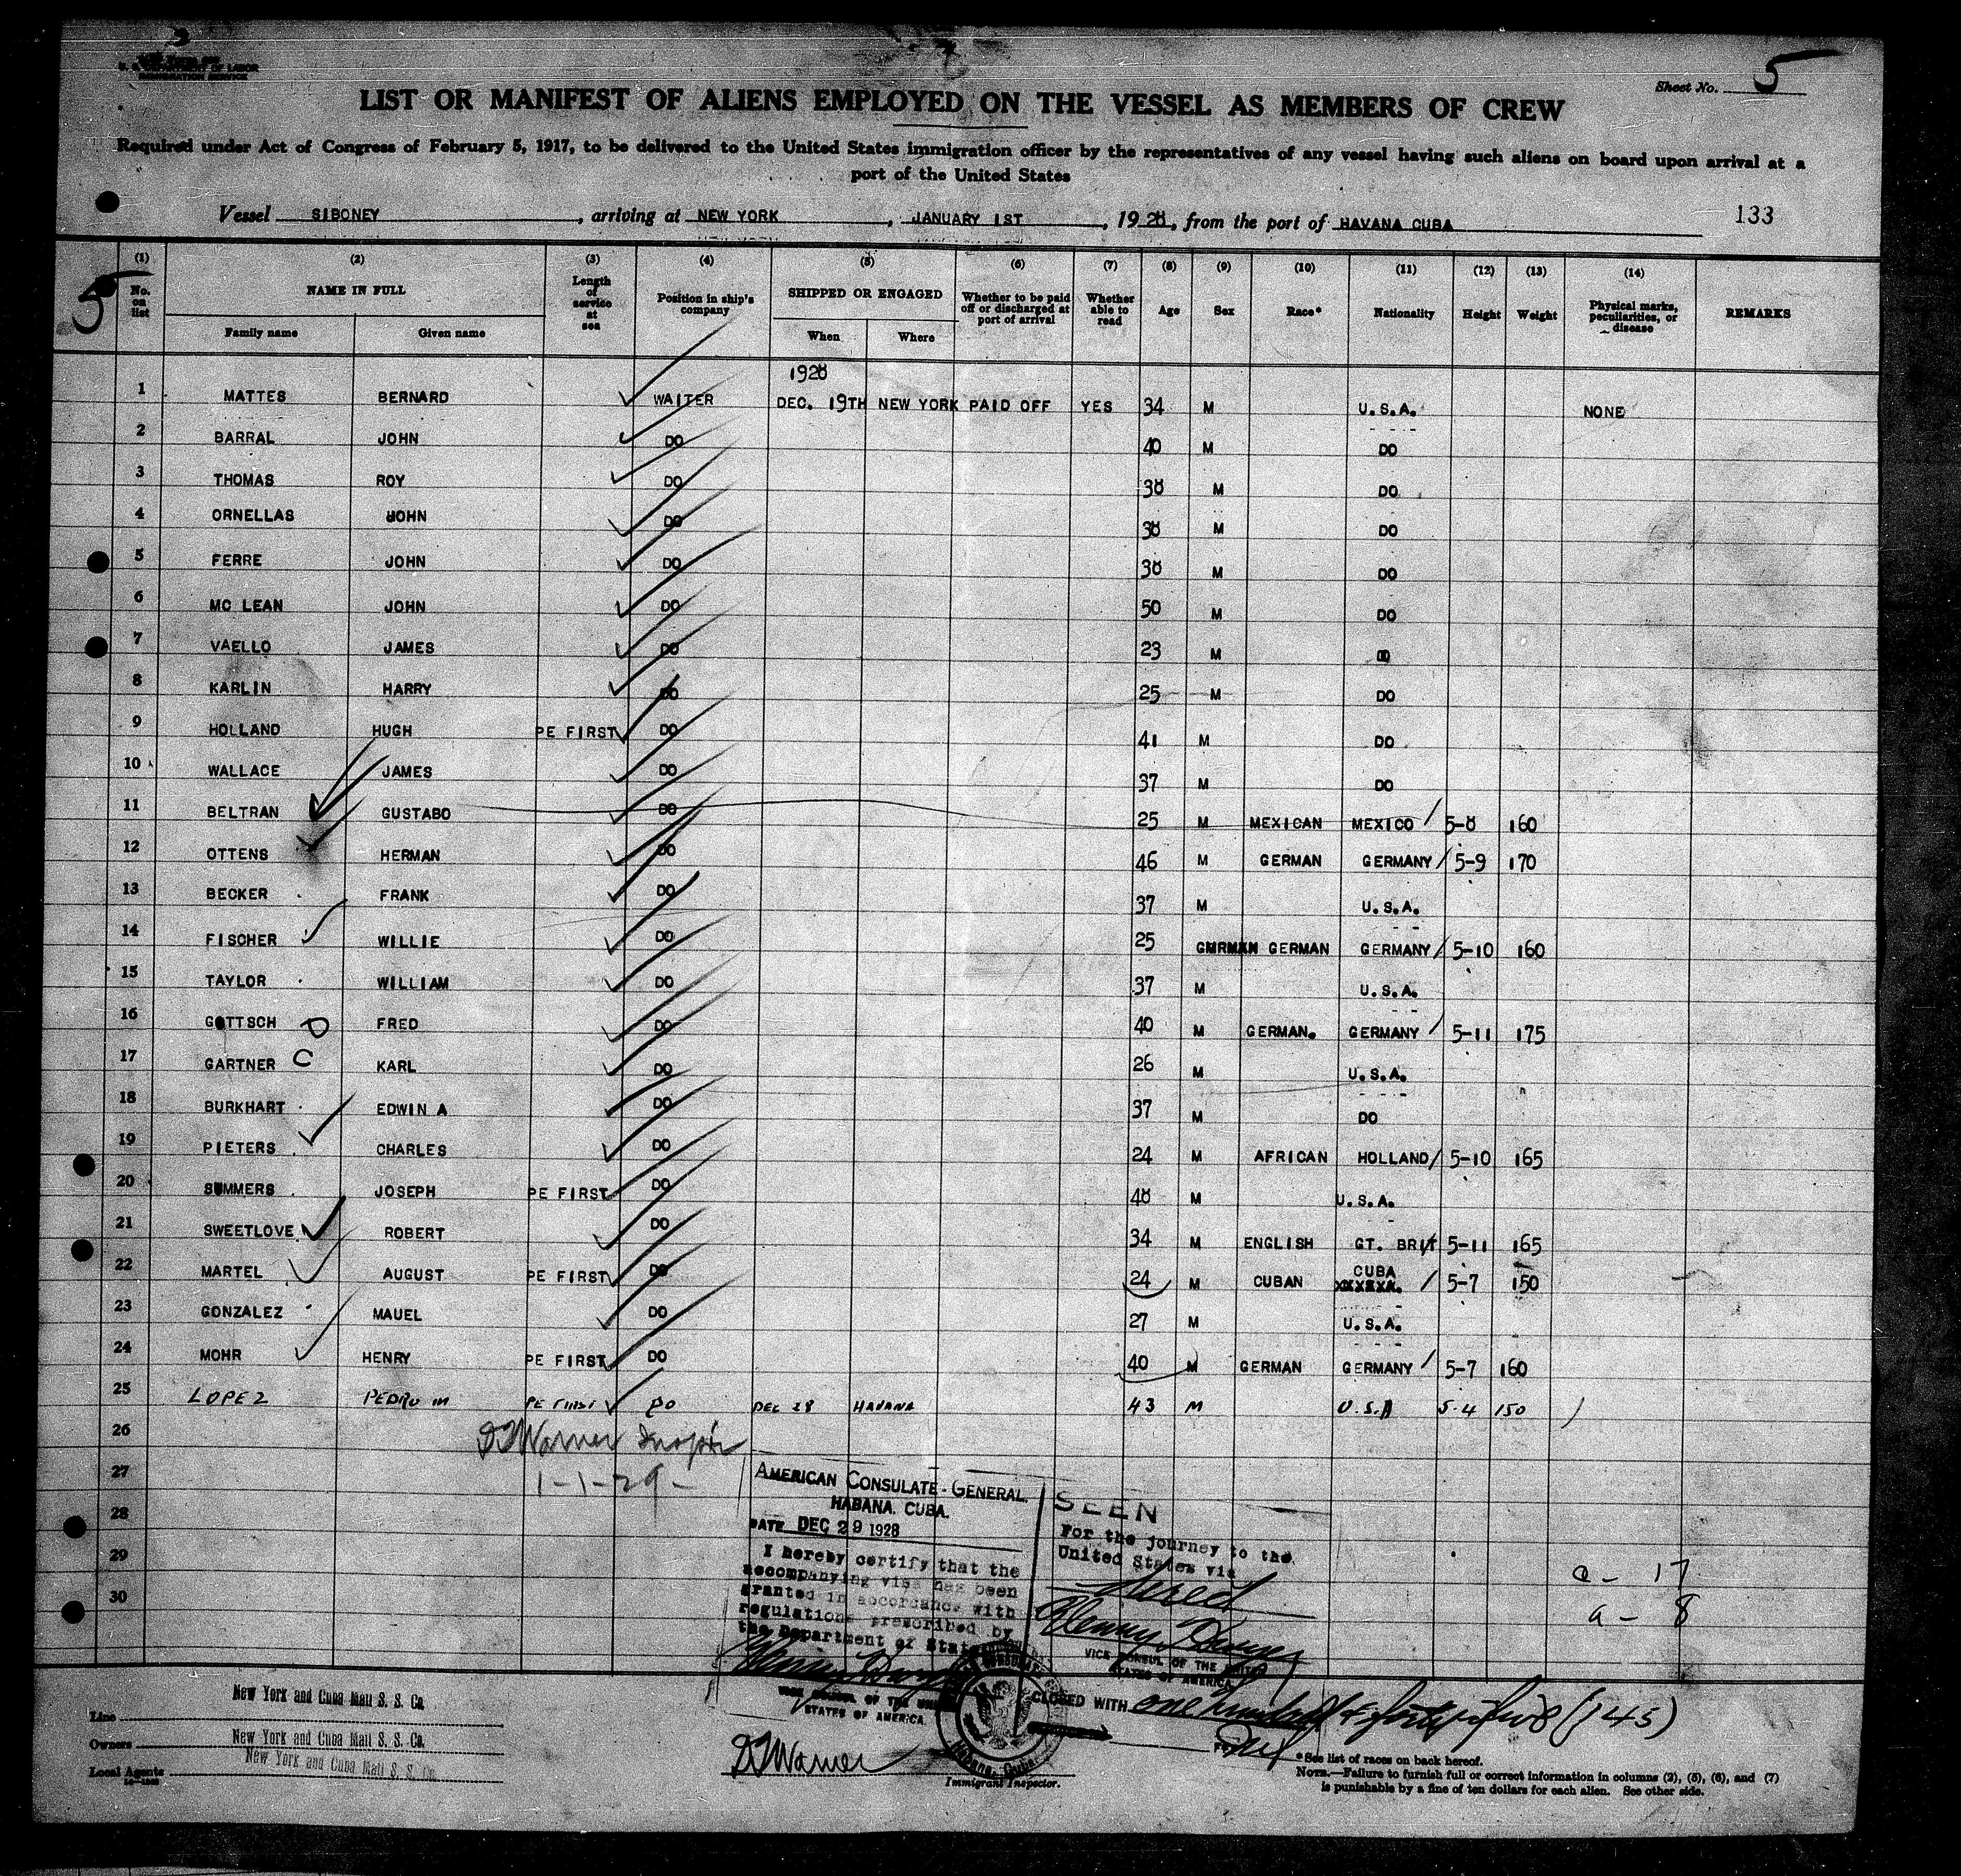 5
U. S. DEPARTMENT OF LABOR
IMMIGRATION SERVICE
Sheet No. 5
LIST OR MANIFEST OF ALIENS EMPLOYED ON THE VESSEL AS MEMBERS OF CREW
Required under Act of Congress of February 5, 1917, to be delivered to the United States immigration officer by the representatives of any vessel having such aliens on board upon arrival at a
port of the United States
Vessel SIBONEY, arriving at NEW YORK, JANUARY 1ST, 1928, from the port of HAVANA CUBA 133
(1) (2) (3) (4) (5) (6) (7) (8) (9) (10) (11) (12) (13) (14)
No. on list NAME IN FULL Family name Given name Length of service at sea Position in ship's company SHIPPED OR ENGAGED When Where Whether to be paid off or discharged at port of arrival Whether able to read Age Sex Race* Nationality Height Weight Physical marks, peculiarities, or disease REMARKS
1928
1 MATTES BERNARD WAITER DEC. 19TH NEW YORK PAID OFF YES 34 M U.S.A. NONE
2 BARRAL JOHN DO 40 M DO
3 THOMAS ROY DO 38 M DO
4 ORNELLAS JOHN DO 38 M DO
5 FERRE JOHN DO 38 M DO
6 MC LEAN JOHN DO 50 M DO
7 VAELLO JAMES DO 23 M DO
8 KARLIN HARRY DO 25 M DO
9 HOLLAND HUGH PE FIRST DO 41 M DO
10 WALLACE JAMES DO 37 M DO
11 BELTRAN GUSTABO DO 25 M MEXICAN MEXICO 5-8 160
12 OTTENS HERMAN DO 46 M GERMAN GERMANY 5-9 170
13 BECKER FRANK DO 37 M U.S.A.
14 FISCHER WILLIE DO 25 GERMAN GERMANY 5-10 160
15 TAYLOR WILLIAM DO 37 M U.S.A.
16 GOTTSCH FRED DO 40 M GERMAN. GERMANY 5-11 175
17 GARTNER KARL DO 26 M U.S.A.
18 BURKHART EDWIN A DO 37 M DO
19 PIETERS CHARLES DO 24 M AFRICAN HOLLAND 5-10 165
20 SUMMERS JOSEPH PE FIRST DO 48 M U.S.A.
21 SWEETLOVE ROBERT DO 34 M ENGLISH GT. BRIT 5-11 165
22 MARTEL AUGUST PE FIRST DO 24 M CUBAN CUBA 5-7 150
23 GONZALEZ MAUEL DO 27 M U.S.A.
24 MOHR HENRY PE FIRST DO 40 M GERMAN GERMANY 5-7 160
25 LOPEZ PEDRO M PE FIRST DO DEC 28 HAVANA 43 M U.S.A 5-4 150
26
DJWarner Inspr
27
1-1-29-
28
29
30
AMERICAN CONSULATE-GENERAL.
HABANA. CUBA.
DATE DEC 29 1928
I hereby certify that the
accompanying visa has been
granted in accordance with
regulations prescribed by
the Department of State
VICE CONSUL OF THE UNITED
STATES OF AMERICA.
SEEN
For the journey to the
United States via
VICE CONSUL OF THE UNITED
STATES OF AMERICA
a - 17
a - 8
CLOSED WITH one hundred & forty five (145)
Line New York and Cuba Mail S. S. Co.
Owners New York and Cuba Mail S. S. Co.
Local Agents New York and Cuba Mail S. S. Co.
DJWarner
Immigrant Inspector.
Habana, Cuba
*See list of races on back hereof.
NOTE.—Failure to furnish full or correct information in columns (2), (5), (6), and (7)
is punishable by a fine of ten dollars for each alien. See other side.